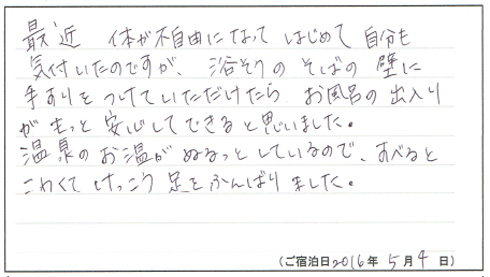 最近 体が不自由になって はじめて 自分も
気付いたのですが、浴そうの そばの 壁に
手すりをつけていただけたら お風呂の出入り
がもっと安心してできると思いました。
温泉のお湯がぬるっとしているので、すべると
こわくて けっこう 足をふんばりました。
(ご宿泊日2016年 5月 4日)